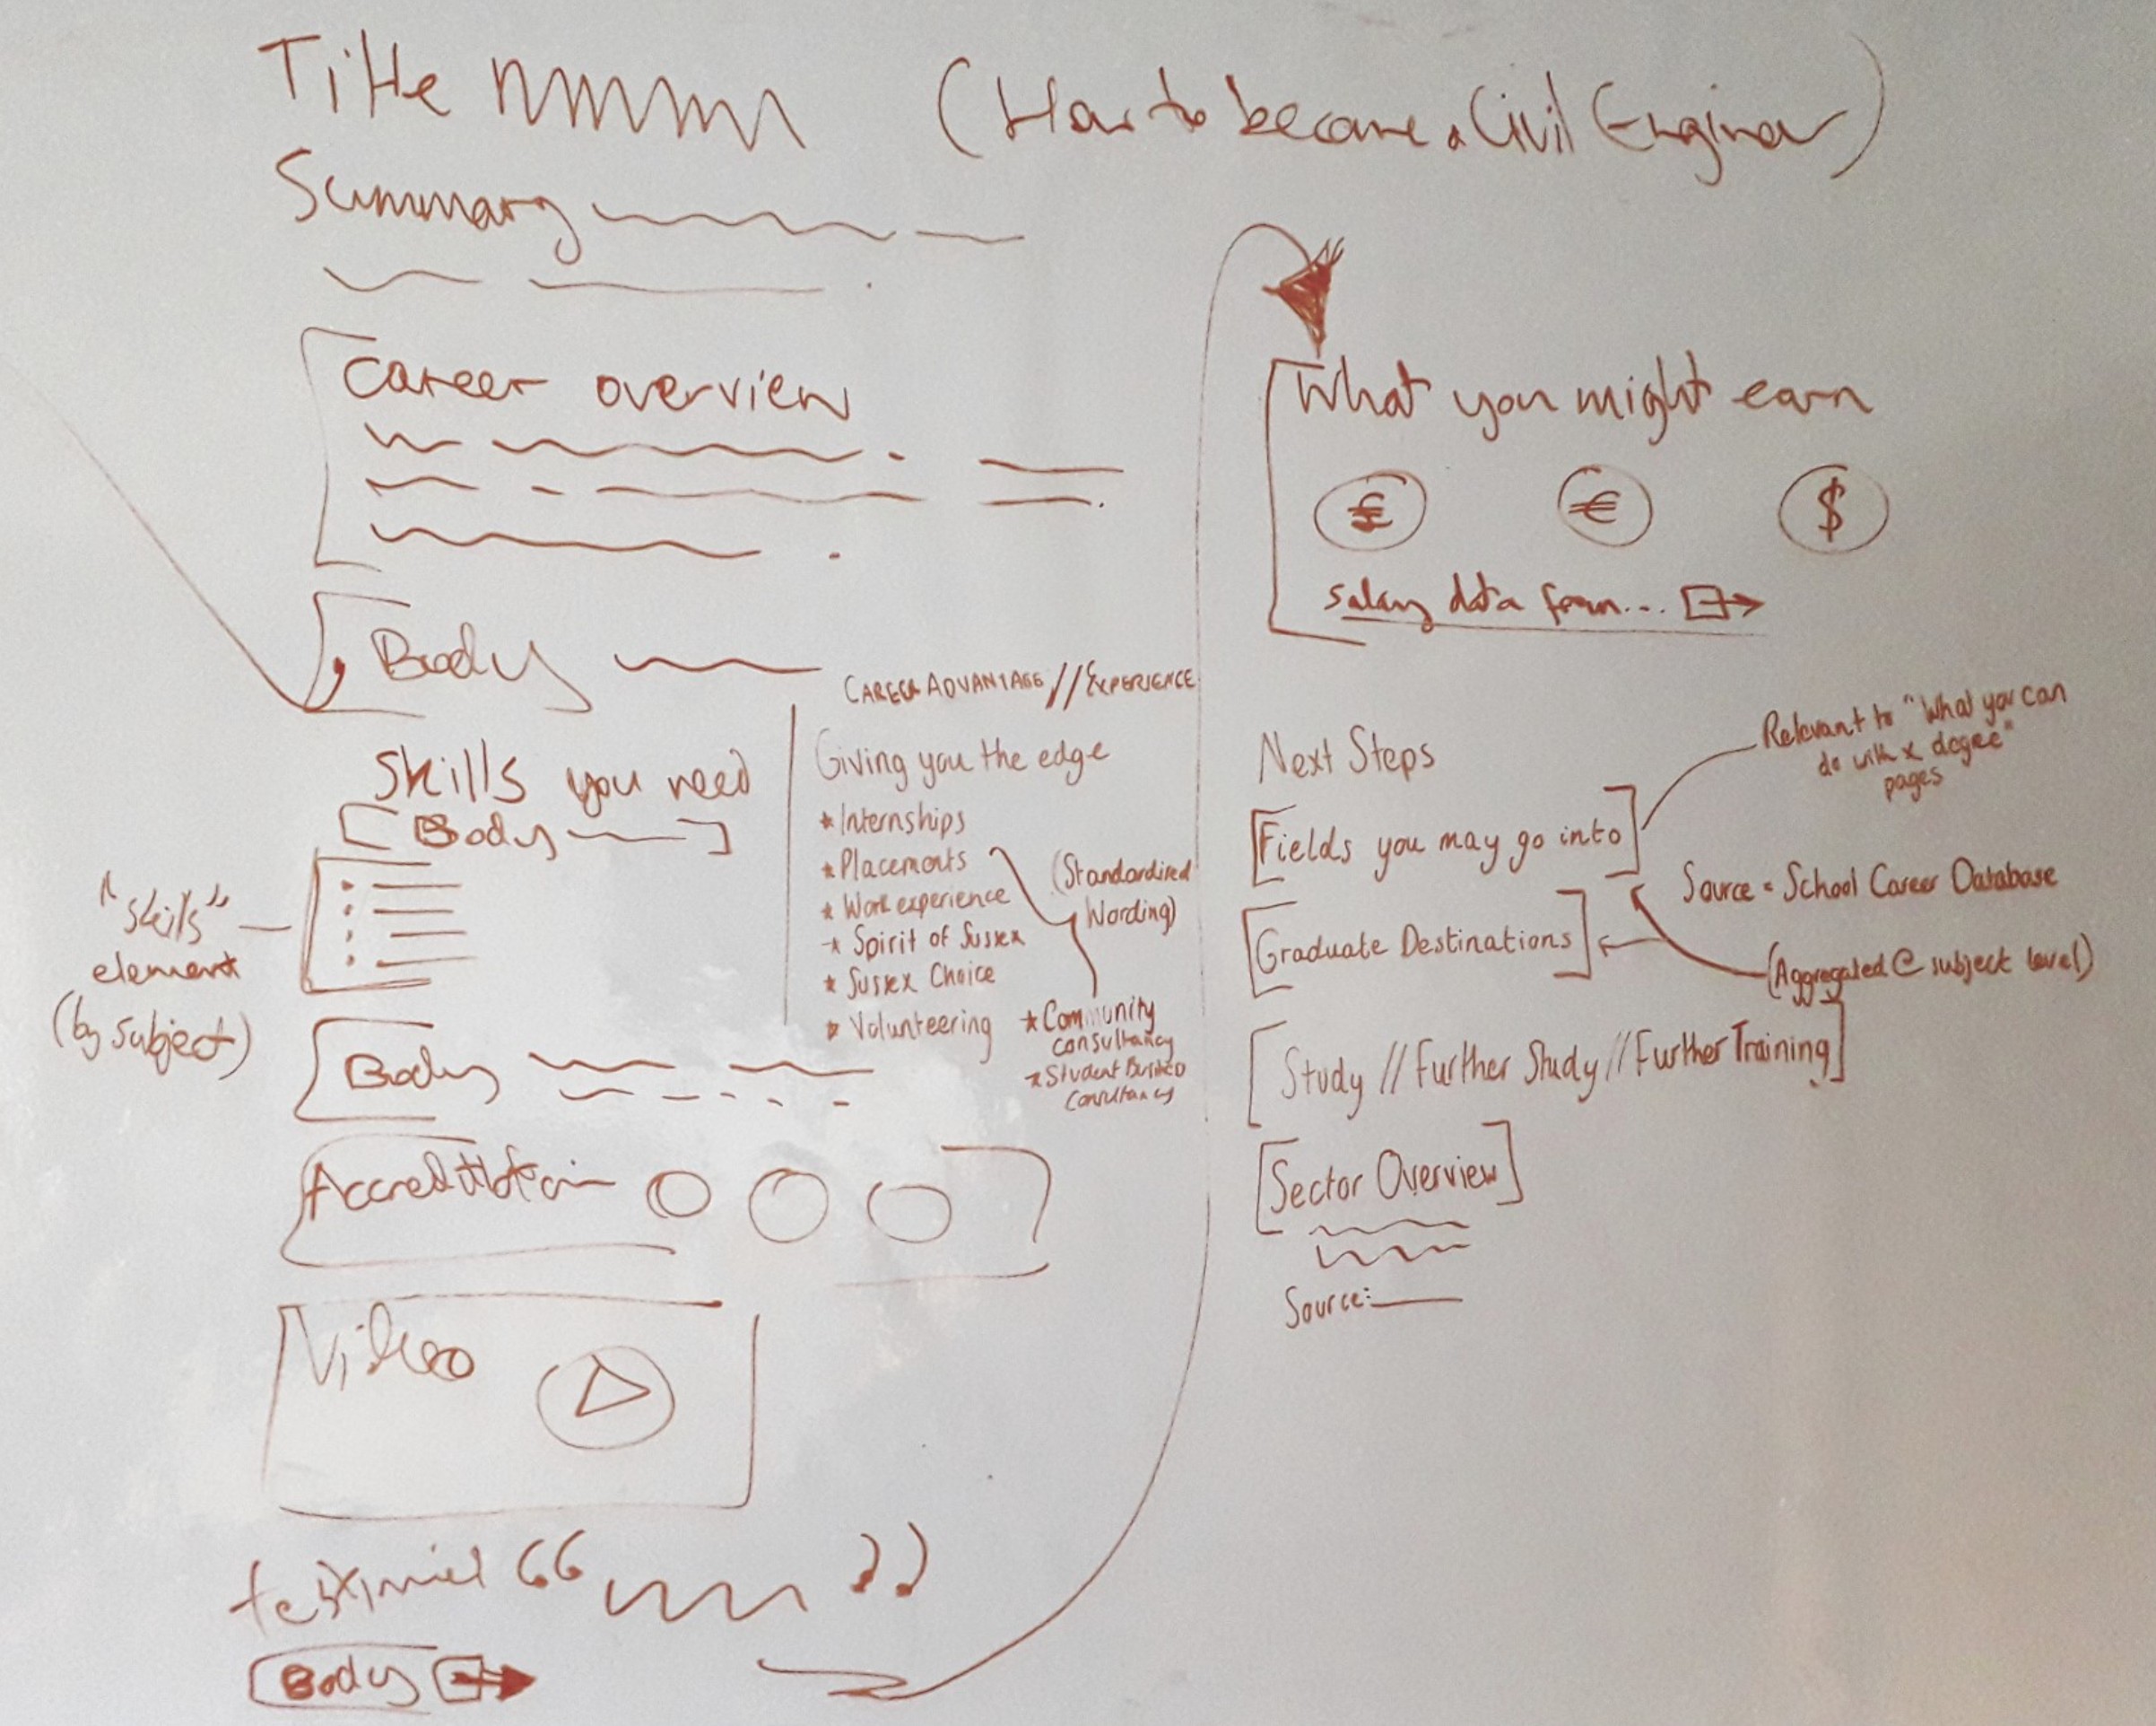 Title
(How to become a Civil Engineer)
Summary
Career overview
Body
Skills you need
[Body]
"Skills"
element
(by subject)
CAREER ADVANTAGE // EXPERIENCE
Giving you the edge
* Internships
* Placements
* Work experience
* Spirit of Sussex
* Sussex Choice
* Volunteering
(Standardised
Wording)
* Community
consultancy
* Student Business
Consultancy
Body
Accreditation
Video
Body
What you might earn
£ € $
salary data from...
Next Steps
[Fields you may go into]
Relevant to "What you can
do with x degree"
pages
[Graduate Destinations]
Source = School Career Database
(Aggregated @ subject level)
[Study // Further Study // Further Training]
[Sector Overview]
Source: